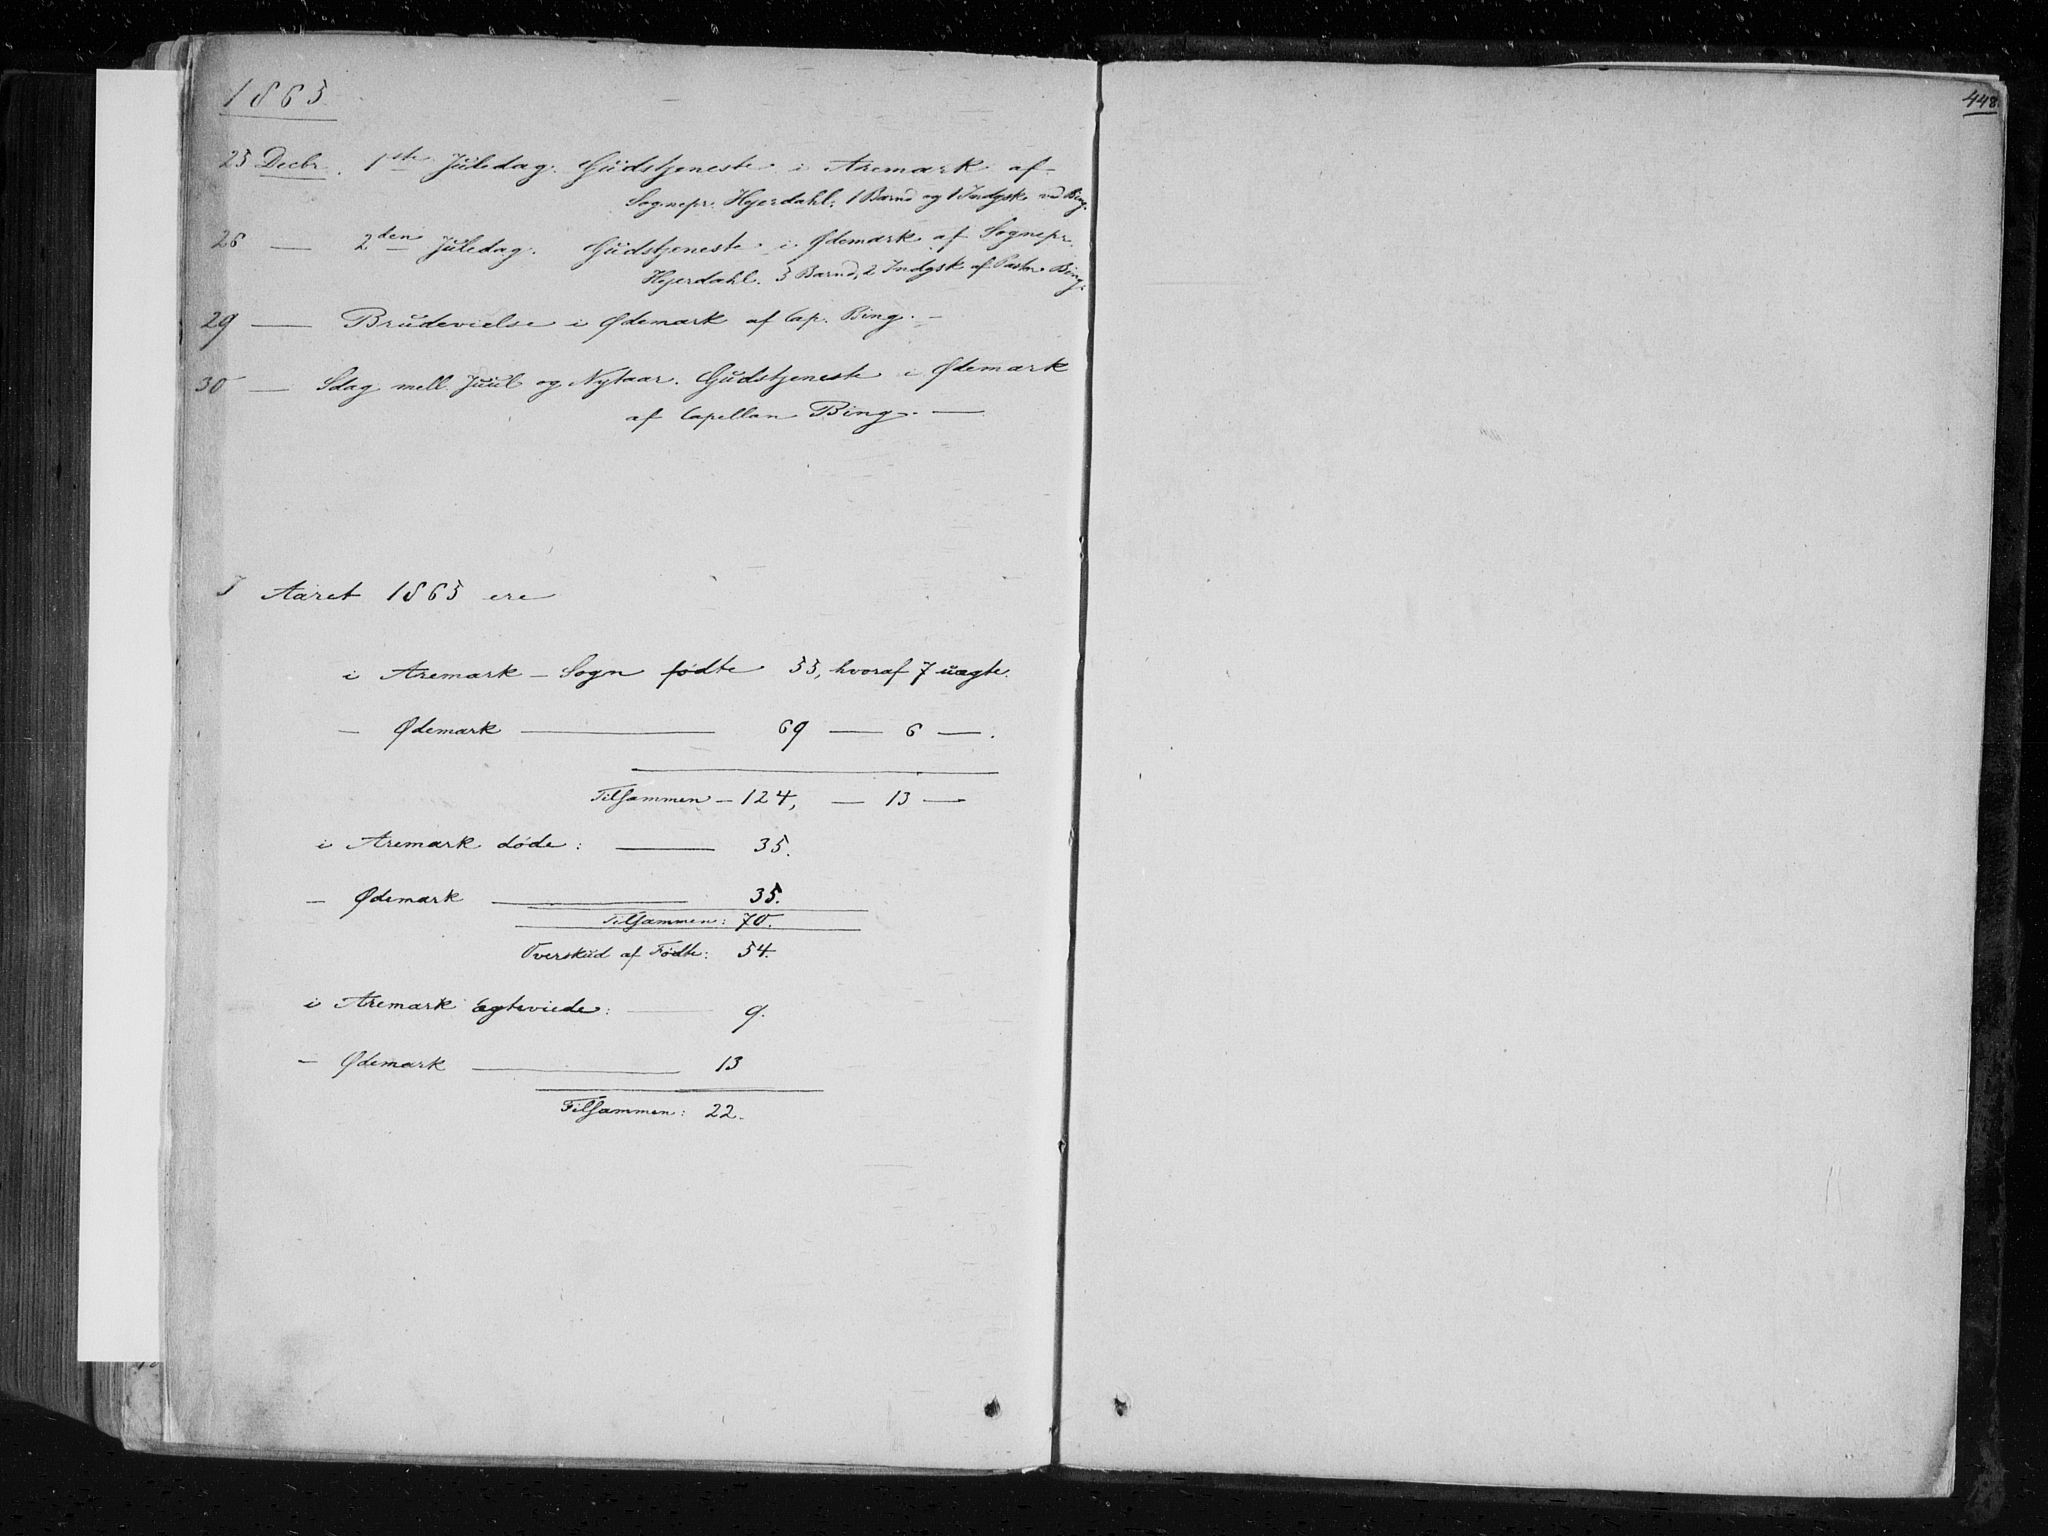 1865
25 Decbr. 1ste Juledag. Gudstjeneste i Aremark af
Sognepr. Hyerdahl; 1 Barnd og 1 Indgsk. ved Bing.
26 — 2den Juledag. Gudstjeneste i Ødemark af Sognepr.
Hyerdahl. 5 Barnd, 2 Indgsk af Pastor Bing.
29 — Brudevielse i Ødemark af Cap. Bing. —
30 — Sdag mell. Juul og Nytaar. Gudstjeneste i Ødemark
af Capellan Bing. —
I Aaret 1865 ere
i Aremark – Sogn fødte 55, hvoraf 7 uægte.
– Ødemark — 69 — 6 —.
Tilsammen – 124, — 13 —
i Aremark døde: — 35.
– Ødemark — 35.
Tilsammen: 70.
Overskud af Fødte: 54.
i Aremark ægteviede: — 9.
– Ødemark — 13
Tilsammen: 22.
448.